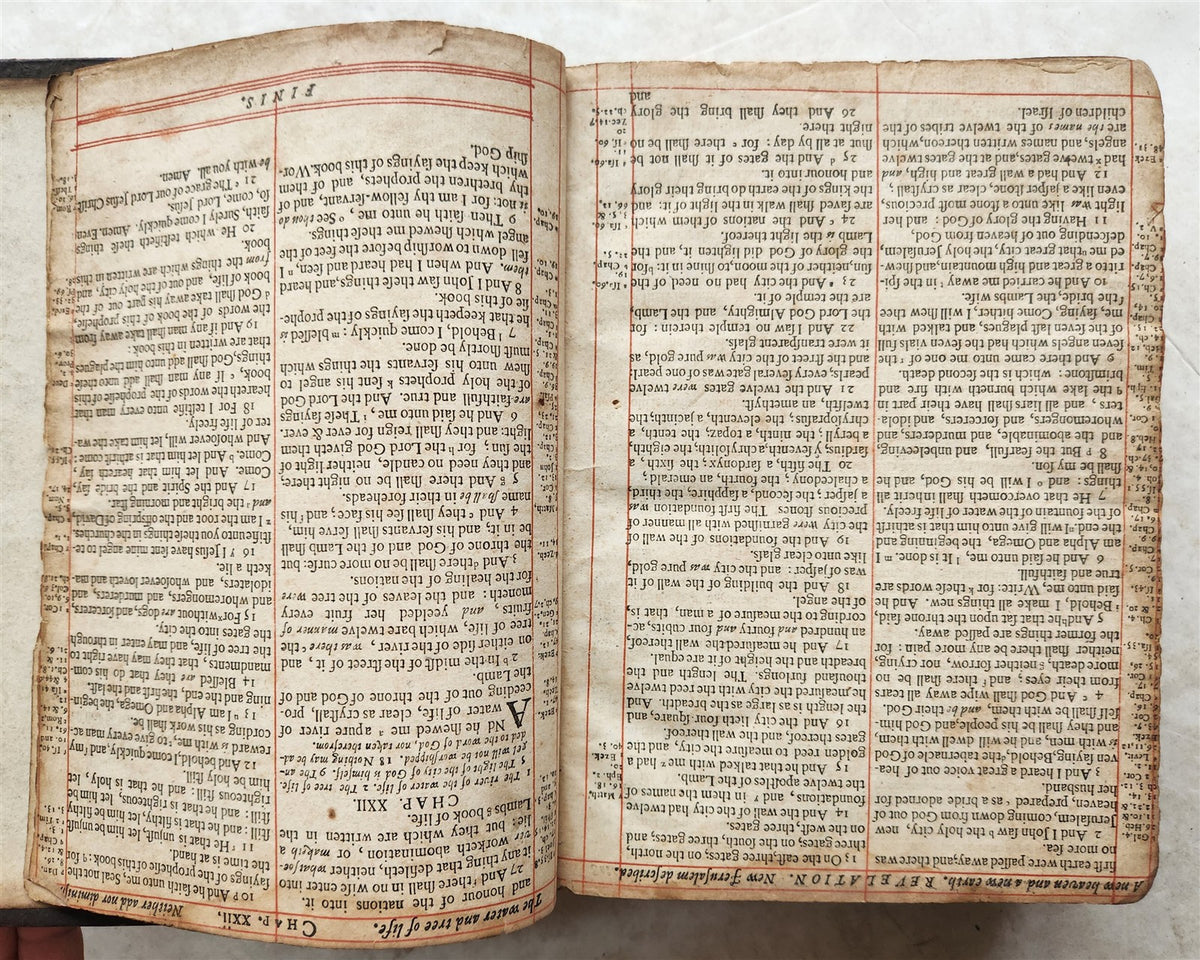 A new heaven and a new earth. REVELATION. New Jeruſalem deſcribed.
firſt earth were paſſed away; and there was
no more ſea.
2 And I John ſaw b the holy city, new
Jeruſalem, coming down from God out of
heaven, prepared c as a bride adorned for
her husband.
3 And I heard a great voice out of hea-
ven ſaying, Behold, d the tabernacle of God
is with men, and he will dwell with them,
and they ſhall be his people, and God him-
ſelf ſhall be with them, and be their God.
4 e And God ſhall wipe away all tears
from their eyes; and f there ſhall be no
more death, g neither ſorrow, nor crying,
neither ſhall there be any more pain: for
the former things are paſſed away.
5 And h he that ſat upon the throne ſaid,
i Behold, I make all things new. And he
ſaid unto me, Write: for k theſe words are
true and faithfull.
6 And he ſaid unto me, l It is done. m I
am Alpha and Omega, the beginning and
the end. n I will give unto him that is athirſt
of the fountain of the water of life freely.
7 He that overcometh ſhall inherit all
things: and o I will be his God, and he
ſhall be my ſon.
8 p But the fearfull, and unbeleeving,
and the abominable, and murderers, and
whoremongers, and ſorcerers, and idola-
ters, and all liars ſhall have their part in
q the lake which burneth with fire and
brimſtone: which is the ſecond death.
9 And there came unto me one of r the
ſeven angels which had the ſeven vials full
of the ſeven laſt plagues, and talked with
me, ſaying, Come hither, I will ſhew thee
ſ the bride, the Lambs wife.
10 And he carried me away t in the ſpi-
rit to a great and high mountain, and ſhew-
ed me u that great city, the holy Jeruſalem,
deſcending out of heaven from God,
11 Having the glory of God: and her
light was like unto a ſtone moſt precious,
even like a jaſper ſtone, clear as cryſtall;
12 And had a wall great and high, and
had x twelve gates, and at the gates twelve
angels, and names written thereon, which
are the names of the twelve tribes of the
children of Iſrael.
13 On the eaſt, three gates; on the north,
three gates; on the ſouth, three gates; and
on the weſt, three gates.
14 And the wall of the city had twelve
foundations, and y in them the names of
the twelve apoſtles of the Lamb.
15 And he that talked with me z had a
golden reed to meaſure the city, and the
gates thereof, and the wall thereof.
16 And the city lieth four ſquare, and
the length is as large as the breadth. And
he meaſured the city with the reed twelve
thouſand furlongs. The length and the
breadth and the height of it are equal.
17 And he meaſured the wall thereof,
an hundred and fourty and four cubits, ac-
cording to the meaſure of a man, that is,
of the angel.
18 And the building of the wall of it
was of jaſper: and the city was pure gold,
like unto clear glaſs.
19 And the foundations of the wall of
the city were garniſhed with all manner of
precious ſtones. The firſt foundation was
a jaſper; the ſecond, a ſapphire, the third,
a chalcedony; the fourth, an emerald;
20 The fifth, a ſardonyx; the ſixth, a
ſardius; the ſeventh, a chryſolith; the eighth,
a beryll; the ninth, a topaz; the tenth, a
chryſopraſus; the eleventh, a jacinth; the
twelfth, an amethyſt.
21 And the twelve gates were twelve
pearls, every ſeverall gate was of one pearl:
and the ſtreet of the city was pure gold, as
it were tranſparent glaſs.
22 And I ſaw no temple therein: for
the Lord God Almighty, and the Lamb,
are the temple of it.
23 a And the city had no need of the
ſun, neither of the moon, to ſhine in it: b for
the glory of God did lighten it, and the
Lamb is the light thereof.
24 c And the nations of them which
are ſaved ſhall walk in the light of it: and
the kings of the earth do bring their glory
and honour into it.
25 d And the gates of it ſhall not be
ſhut at all by day: for e there ſhall be no
night there.
26 And they ſhall bring the glory
and
The water and tree of life. CHAP. XXII. Neither add nor diminiſh
honour of the nations into it.
27 And f there ſhall in no wiſe enter into
it any thing that defileth, neither whatſoe-
ver worketh abomination, or maketh a
lie: but they which are written in the
Lambs g book of life.
CHAP. XXII.
1 The river of the water of life. 2 The tree of life.
5 The light of the city of God is himſelf. 9 The an-
gel will not be worſhipped. 18 Nothing may be ad-
ded to the word of God, nor taken therefrom.
ANd he ſhewed me a a pure river of
water of life, clear as cryſtall, pro-
ceeding out of the throne of God and of
the Lamb.
2 b In the midſt of the ſtreet of it, and
on either ſide of the river, was there c the
tree of life, which bare twelve manner of
fruits, and yeelded her fruit every
month: and the leaves of the tree were
for the healing of the nations.
3 And d there ſhall be no more curſe: but
the throne of God and of the Lamb ſhall
be in it; and his ſervants ſhall ſerve him,
4 And e they ſhall ſee his face; and f his
name ſhall be in their foreheads.
5 g And there ſhall be no night there;
and they need no candle, neither light of
the ſun; for h the Lord God giveth them
light: and they ſhall reign for ever & ever.
6 And he ſaid unto me, i Theſe ſayings
are faithfull and true. And the Lord God
of the holy prophets k ſent his angel to
ſhew unto his ſervants the things which
muſt ſhortly be done.
7 l Behold, I come quickly: m bleſſed is
he that keepeth the ſayings of the prophe-
ſie of this book.
8 And I John ſaw theſe things, and heard
them. And when I had heard and ſeen, n I
fell down to worſhip before the feet of the
angel which ſhewed me theſe things.
9 Then ſaith he unto me, o See thou do
it not: for I am thy fellow-ſervant, and of
thy brethren the prophets, and of them
which keep the ſayings of this book. Wor-
ſhip God.
10 p And he ſaith unto me, Seal not the
ſayings of the propheſie of this book: q for
the time is at hand.
11 r He that is unjuſt, let him be unjuſt
ſtill: and he that is filthy, let him be filthy
ſtill: and he that is righteous, let him be
righteous ſtill: and he that is holy, let
him be holy ſtill.
12 And behold, I come quickly, and my
reward is with me, t to give every man ac-
cording as his work ſhall be.
13 u I am Alpha and Omega, the begin-
ning and the end, the firſt and the laſt.
14 Bleſſed are they that do his com-
mandments, that they may have right to
the tree of life, and may enter in through
the gates into the city.
15 For x without are dogs, and ſorcerers,
and whoremongers, and murderers, and
idolaters, and whoſoever loveth and ma-
keth a lie.
16 y I Jeſus have ſent mine angel to te-
ſtifie unto you theſe things in the churches.
z I am the root and the offſpring of David,
and a the bright and morning ſtar.
17 And the Spirit and the bride ſay,
Come. And let him that heareth ſay,
Come. b And let him that is athirſt come:
And whoſoever will, let him take the wa-
ter of life freely.
18 For I teſtifie unto every man that
heareth the words of the propheſie of this
book, c If any man ſhall add unto theſe
things, God ſhall add unto him the plagues
that are written in this book:
19 And if any man ſhall take away from
the words of the book of this propheſie,
d God ſhall take away his part out of the
book of life, and out of the holy city, and
from the things which are written in this
book.
20 He which teſtifieth theſe things
ſaith, Surely I come quickly. Amen. Even
ſo, come, Lord Jeſus.
21 e The grace of our Lord Jeſus Chriſt
be with you all. Amen.
FINIS.